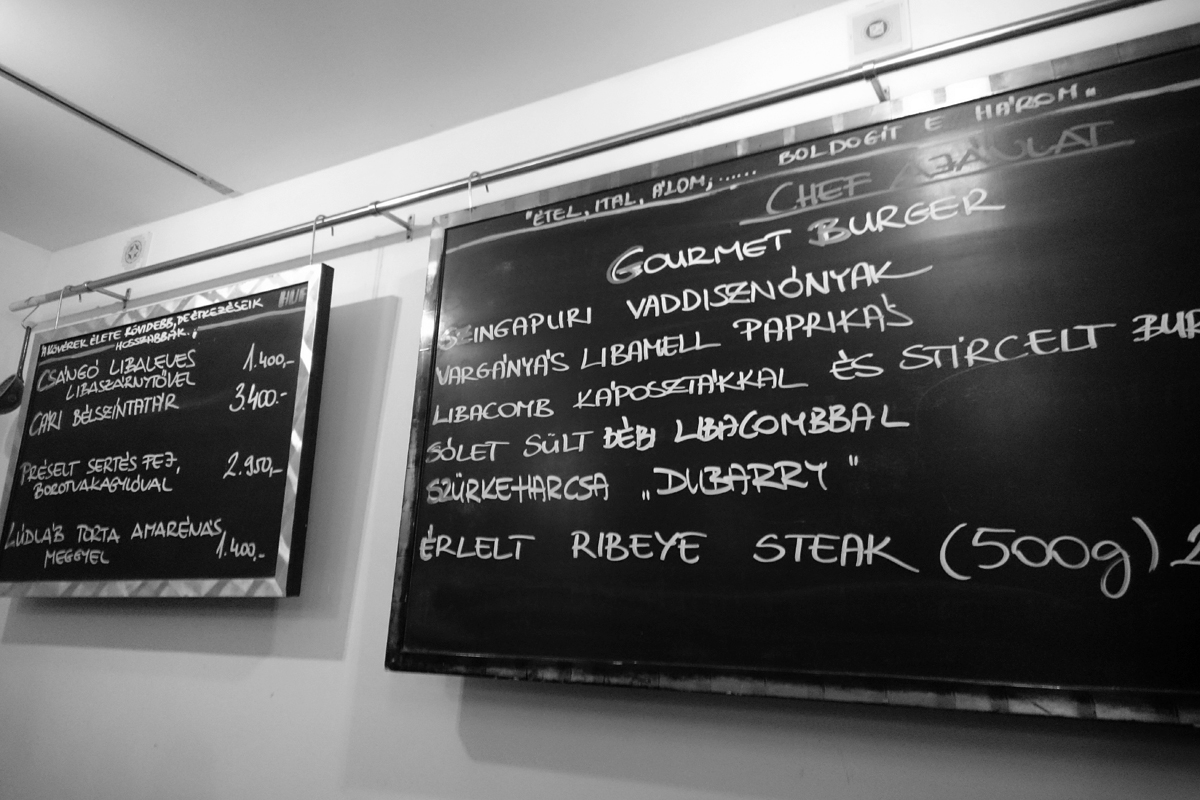 "A KÖVÉREK ÉLETE RÖVIDEBB, DE ÉTKEZÉSEIK
HOSSZABBAK..."
CSÁNGÓ LIBALEVES 1.400,-
LIBASZÁRNYTŐVEL
CARI BÉLSZÍNTATÁR 3.400.-
PRÉSELT SERTÉS FEJ, 2.950,-
BOROTVAKAGYLÓVAL
LÚDLÁB TORTA AMARÉNÁS 1.400,-
MEGGYEL
"ÉTEL, ITAL, ÁLOM;...... BOLDOGÍT E HÁROM"
CHEF AJÁNLAT
GOURMET BURGER
SZINGAPURI VADDISZNÓNYAK
VARGÁNYÁS LIBAMELL PAPRIKÁS
LIBACOMB KÁPOSZTÁKKAL ÉS STIRCELT BUR
SÓLET SÜLT BÉBI LIBACOMBBAL
SZÜRKEHARCSA „DUBARRY"
ÉRLELT RIBEYE STEAK (500g) 2